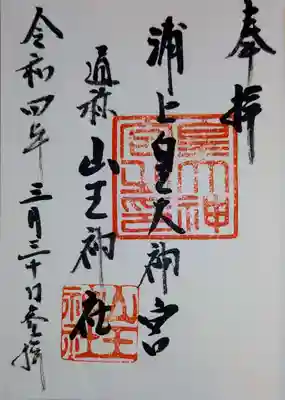 奉拝
浦上皇大神宮
通称 山王神社
令和四年 三月三十日参拝
皇大神宮之印
山王神社